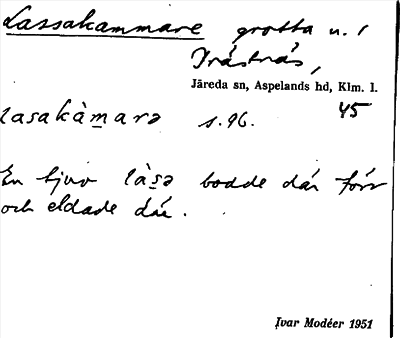 Lassakammare grotta n. i
Trästnäs,
Järeda sn, Aspelands hd, Klm. l.
lasakàmarə s. 96. 45
En tjuv làsə bodde där förr
och eldade där.
Ivar Modéer 1951